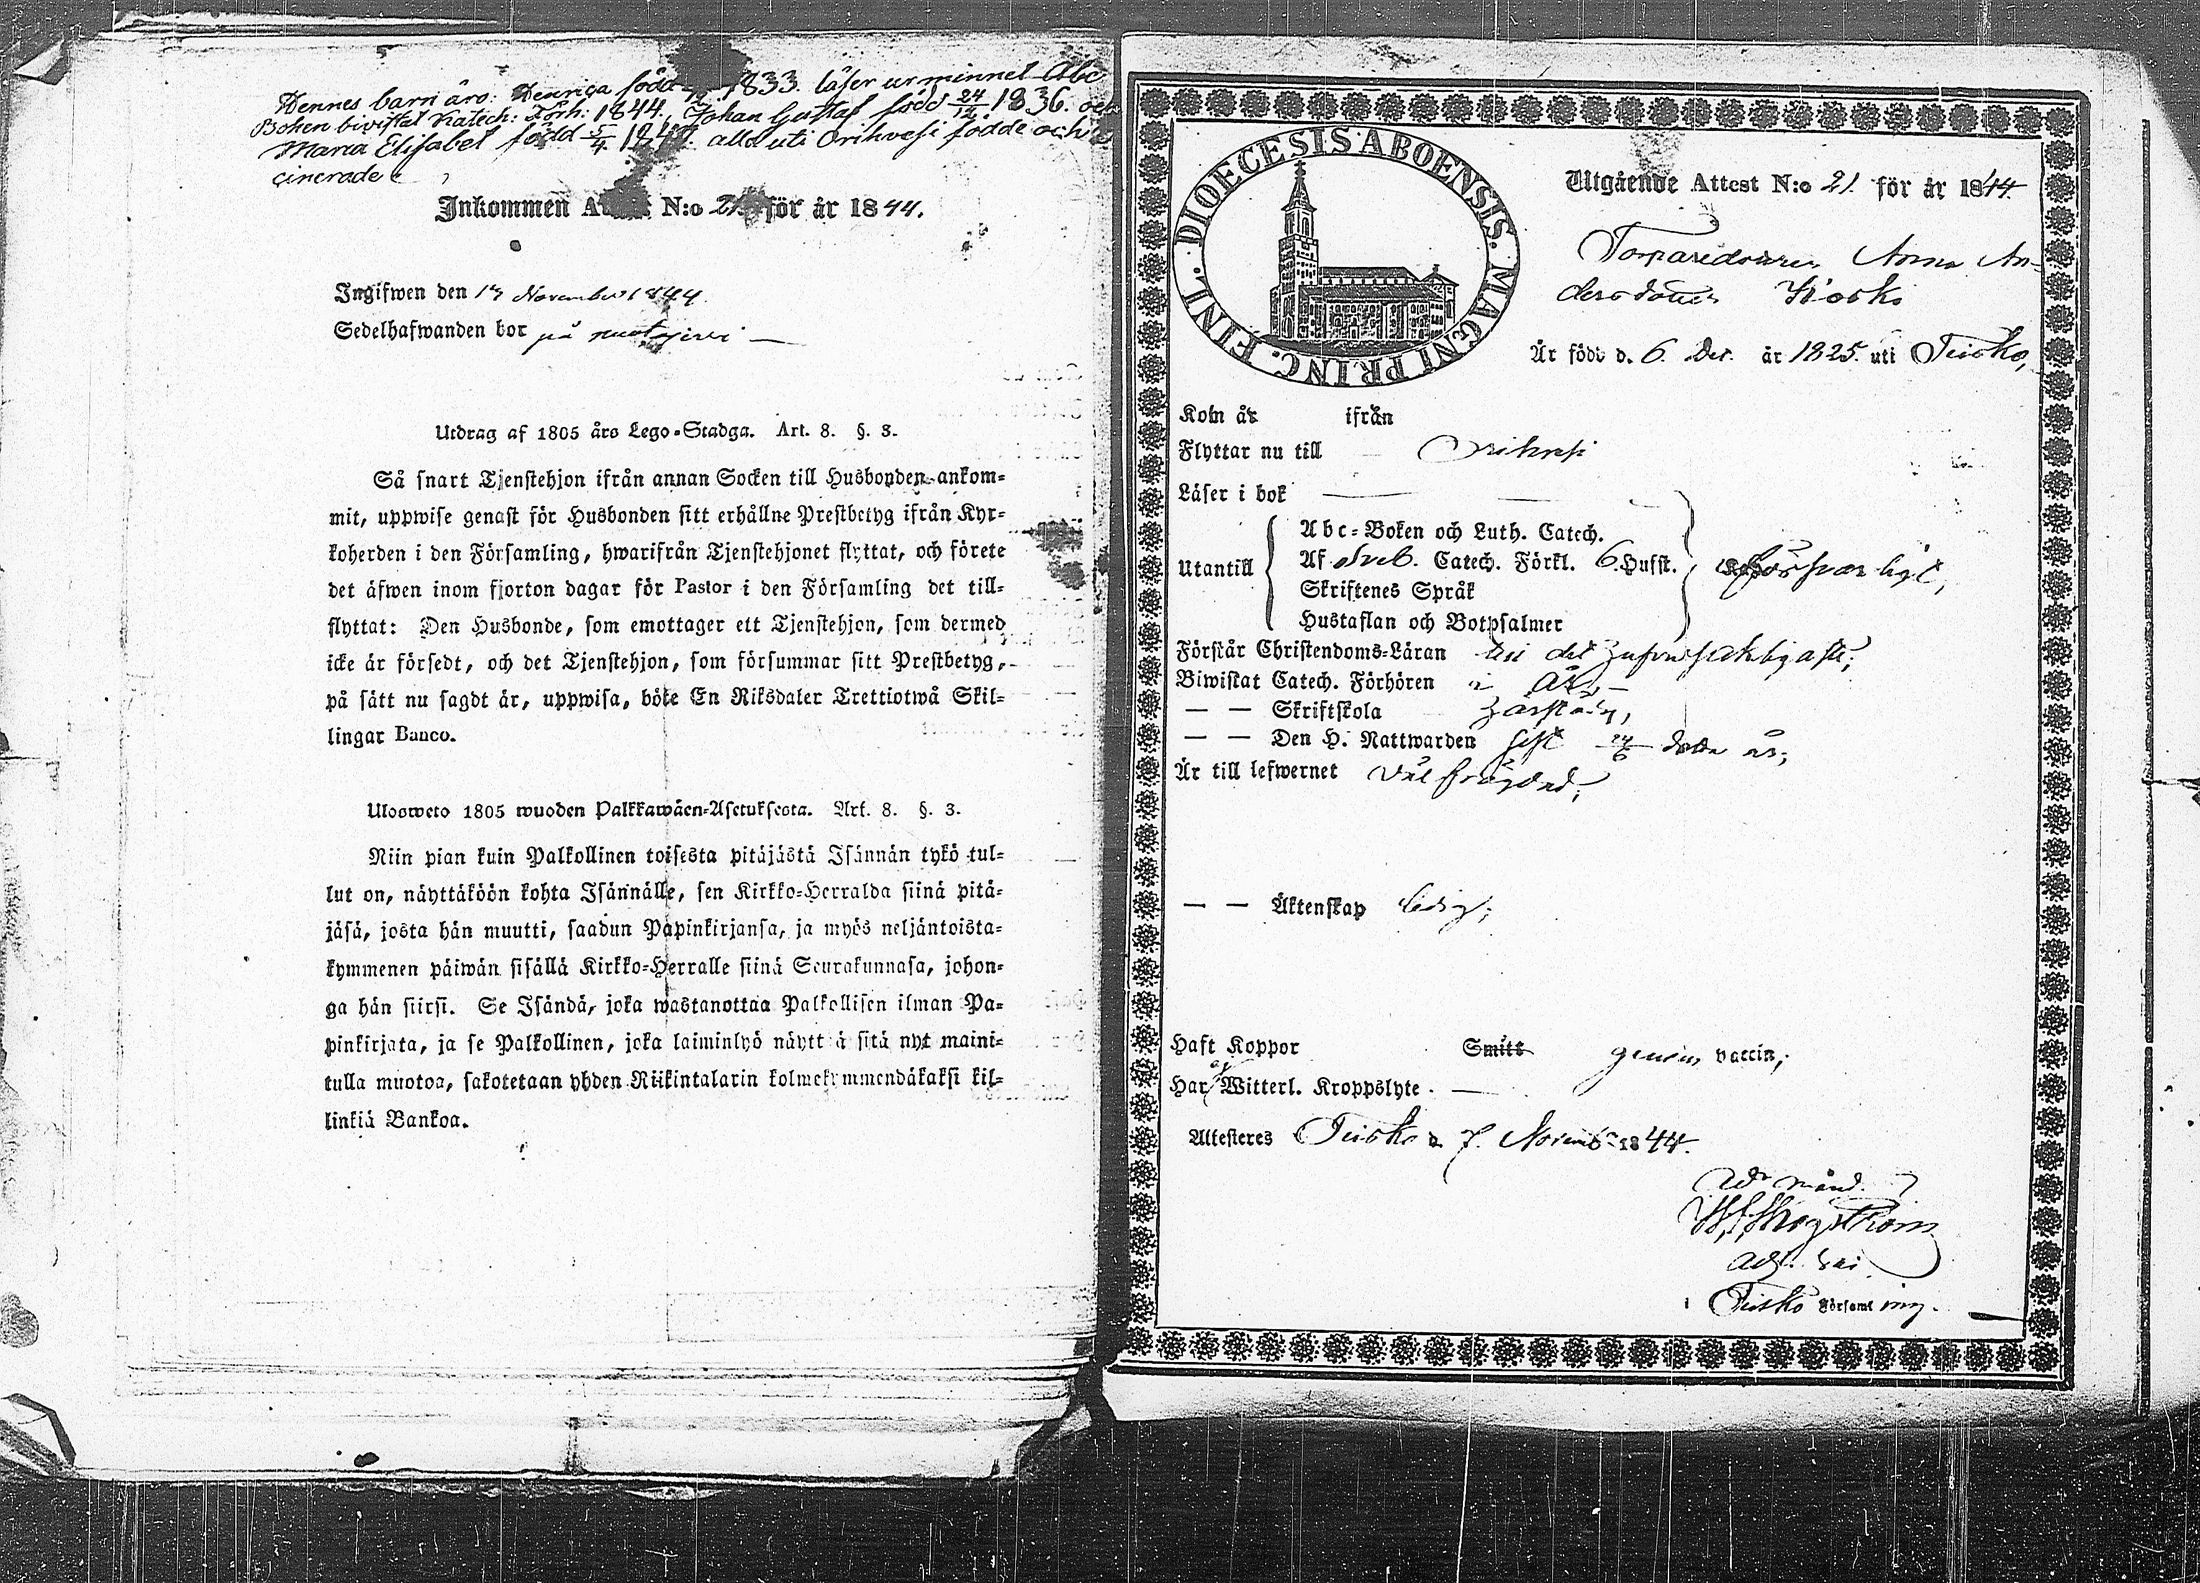 Hennes barn äro: Henrica född 1833. läser ur minnet Abc
Boken bivistat Katech: Förh: 1844. Johan Gustaf född 24/12 1836. och
Maria Elisabet född 5/4 184 alla uti Orihvesi födde och
cinerade
Inkommen N:o 21 för år 1844.
Ingifwen den 17 November 1844.
Sedelhafwanden bor på
Utdrag af 1805 års Lego-Stadga. Art. 8. §. 3.
Så snart Tjenstehjon ifrån annan Socken till Husbonden ankom-
mit, uppwise genast för Husbonden sitt erhållne Prestbetyg ifrån Kyr-
koherden i den Församling, hwarifrån Tjenstehjonet flyttat, och förete
det äfwen inom fjorton dagar för Pastor i den Församling det till-
flyttat: Den Husbonde, som emottager ett Tjenstehjon, som dermed
icke är försedt, och det Tjenstehjon, som försummar sitt Prestbetyg,
på sätt nu sagdt är, uppwisa, böte En Riksdaler Trettiotwå Skil-
lingar Banco.
Ulosweto 1805 wuoden Palkkawäen-Asetuksesta. Art. 8. §. 3.
Niin pian kuin Palkollinen toisesta pitäjästä Isännän tykö tul-
lut on, näyttäköön kohta Isännälle, sen Kirkko-Herralda siinä pitä-
jäsä, josta hän muutti, saadun Papinkirjansa, ja myös neljäntoista-
kymmenen päiwän sisällä Kirkko-Herralle siinä Seurakunnasa, johon-
ga hän siirsi. Se Isändä, joka wastanottaa Palkollisen ilman Pa-
pinkirjata, ja se Palkollinen, joka laiminlyö näyttä sitä nyt maini-
tulla muotoa, sakotetaan yhden Riikintalarin kolmekymmendäkaksi kil-
linkiä Bankoa.
DIOECESIS ABOENSIS. MAGNI PRINC. FINL.
Utgående Attest N:o 21. för år 1844.
Torparedottren Anna An-
dersdotter Koski
Är född d. 6. Dec. år 1825. uti Teisko,
Kom år ifrån
Flyttar nu till Orihvesi
Läser i bok
Abc-Boken och Luth. Catech.
Utantill Af Sveb. Catech. Förkl. 6. Husst. försvarligt,
Skriftenes Språk
Hustaflan och Botpsalmer
Förstår Christendoms-Läran till det
Biwistat Catech. Förhören i år,
— — Skriftskola
— — Den H. Nattwarden sist 24/6 detta år;
Är till lefwernet väl frägdad;
— — Äktenskap ledig;
Haft Koppor Smitt genom vaccin,
Har ej Witterl. Kroppslyte.
Attesteres Teisko d. 7. Novemb. 1844.
adj.
i Teisko Församling.